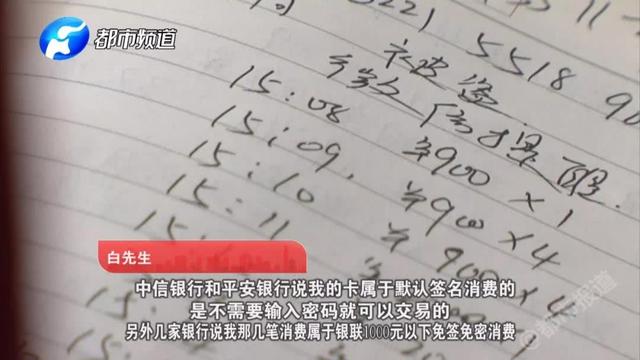 都市频道
5518
被盗
信提醒
15:08 ¥900 ×1
15:09. ¥900 ×4
15:10 ¥900 ×
15:11
白先生
中信银行和平安银行说我的卡属于默认签名消费的
是不需要输入密码就可以交易的
另外几家银行说我那几笔消费属于银联1000元以下免签免密消费
都市报道